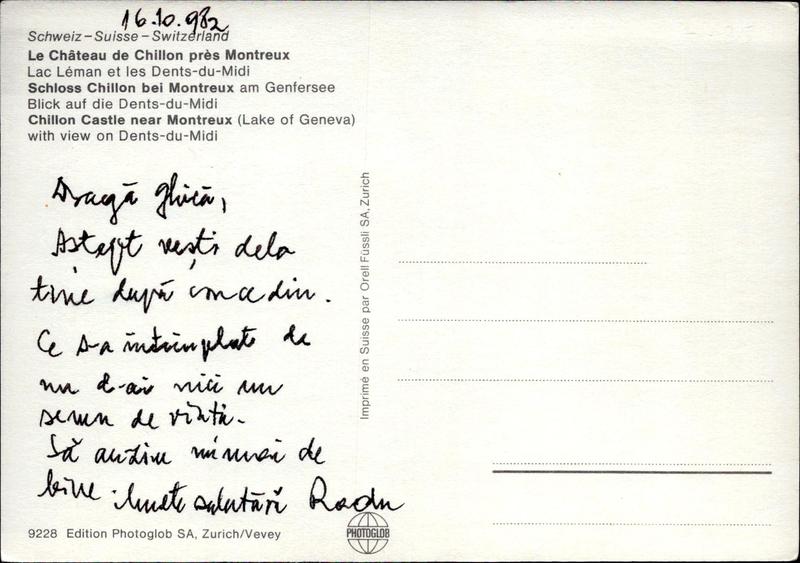 16.10.982
Schweiz–Suisse–Switzerland
Le Château de Chillon près Montreux
Lac Léman et les Dents-du-Midi
Schloss Chillon bei Montreux am Genfersee
Blick auf die Dents-du-Midi
Chillon Castle near Montreux (Lake of Geneva)
with view on Dents-du-Midi
Dragă Ghică,
Astept vești dela
tine după concediu.
Ce s-a întîmplat de
nu d-ai nici un
semn de viață.
Să auzim numai de
bine. Multe salutări Radu
9228 Edition Photoglob SA, Zurich/Vevey
PHOTOGLOB
Imprimé en Suisse par Orell Füssli SA, Zurich